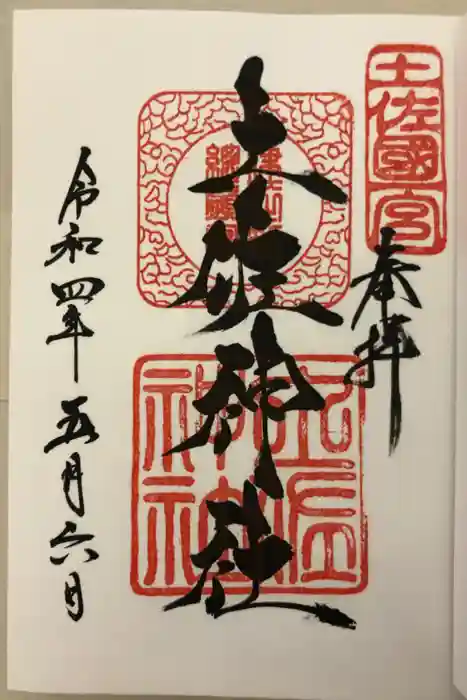 土佐國一宮
奉拝
土佐神社
土佐
神社
令和四年五月六日